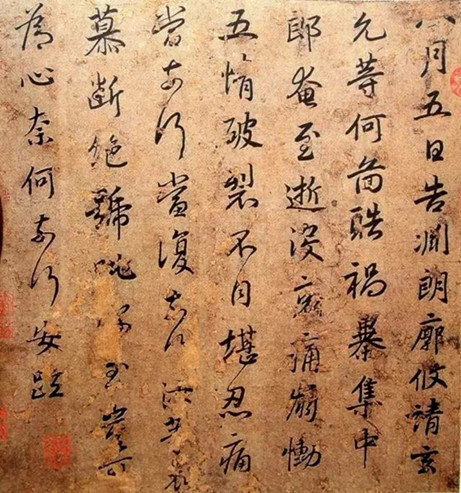 八月五日告淵朗廓攸請玄
允等何啚酷禍暴集中
郎奄至逝沒哀痛崩慟
五情破裂不自堪忍痛
當奈何當復奈何汝等哀
慕斷絕號咷深至豈可
為心奈何奈何安疏